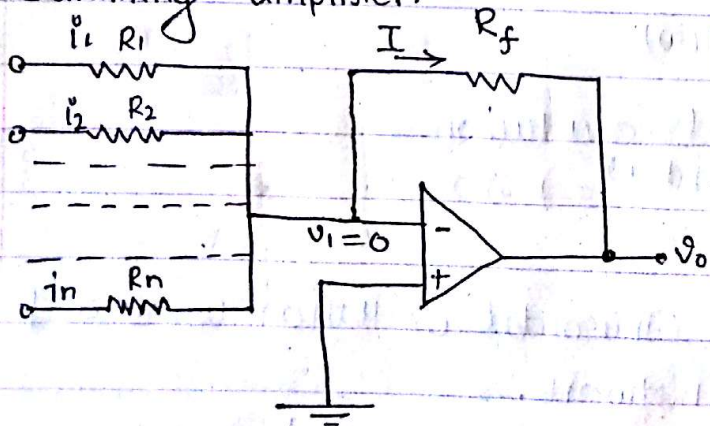 amplifier.
i₁ R₁
I → R_f
i₂ R₂
v₁ = 0
-
+
v₀
in Rn